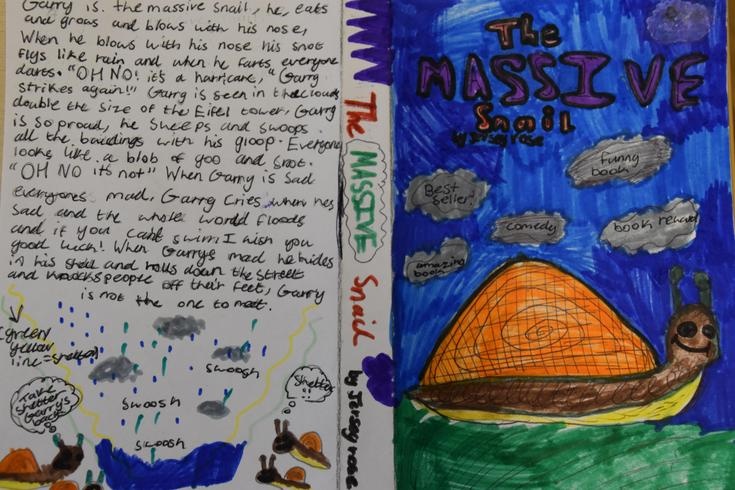 Garry is. the massive snail, he, eats
and grows and blows with his nose,
When he blows with his nose his snot
flys like rain and when he farts everyone
dares. "OH NO! it's a harricare," Garry
strikes again!!" Garry is seen in the clouds
double the size of the Eifel tower, Garry
is so proad, he sweeps and swoops.
all the baildings with his gloop. Everyone
looks like a blob of goo and snot.
"OH NO it's not" When Garry is Sad
everyones mad, Garry Cries when hes
Sad, and the whole world floods
and if you cant swim I wish you
good luck! When Garrys mad he hides
in his shell and rolls down the street
and knocks people off their feet, Garry
is not the one to meet.
(green
yellow
line = shelter)
Take
shelter
Garry's
back
swoosh
swoosh
swoosh
Shelter!
The MASSIVE Snail by Jersey rose
The
MASSIVE
Snail
by Jersey rose
funny
book
Best
seller!
comedy
book reward
amazing
book